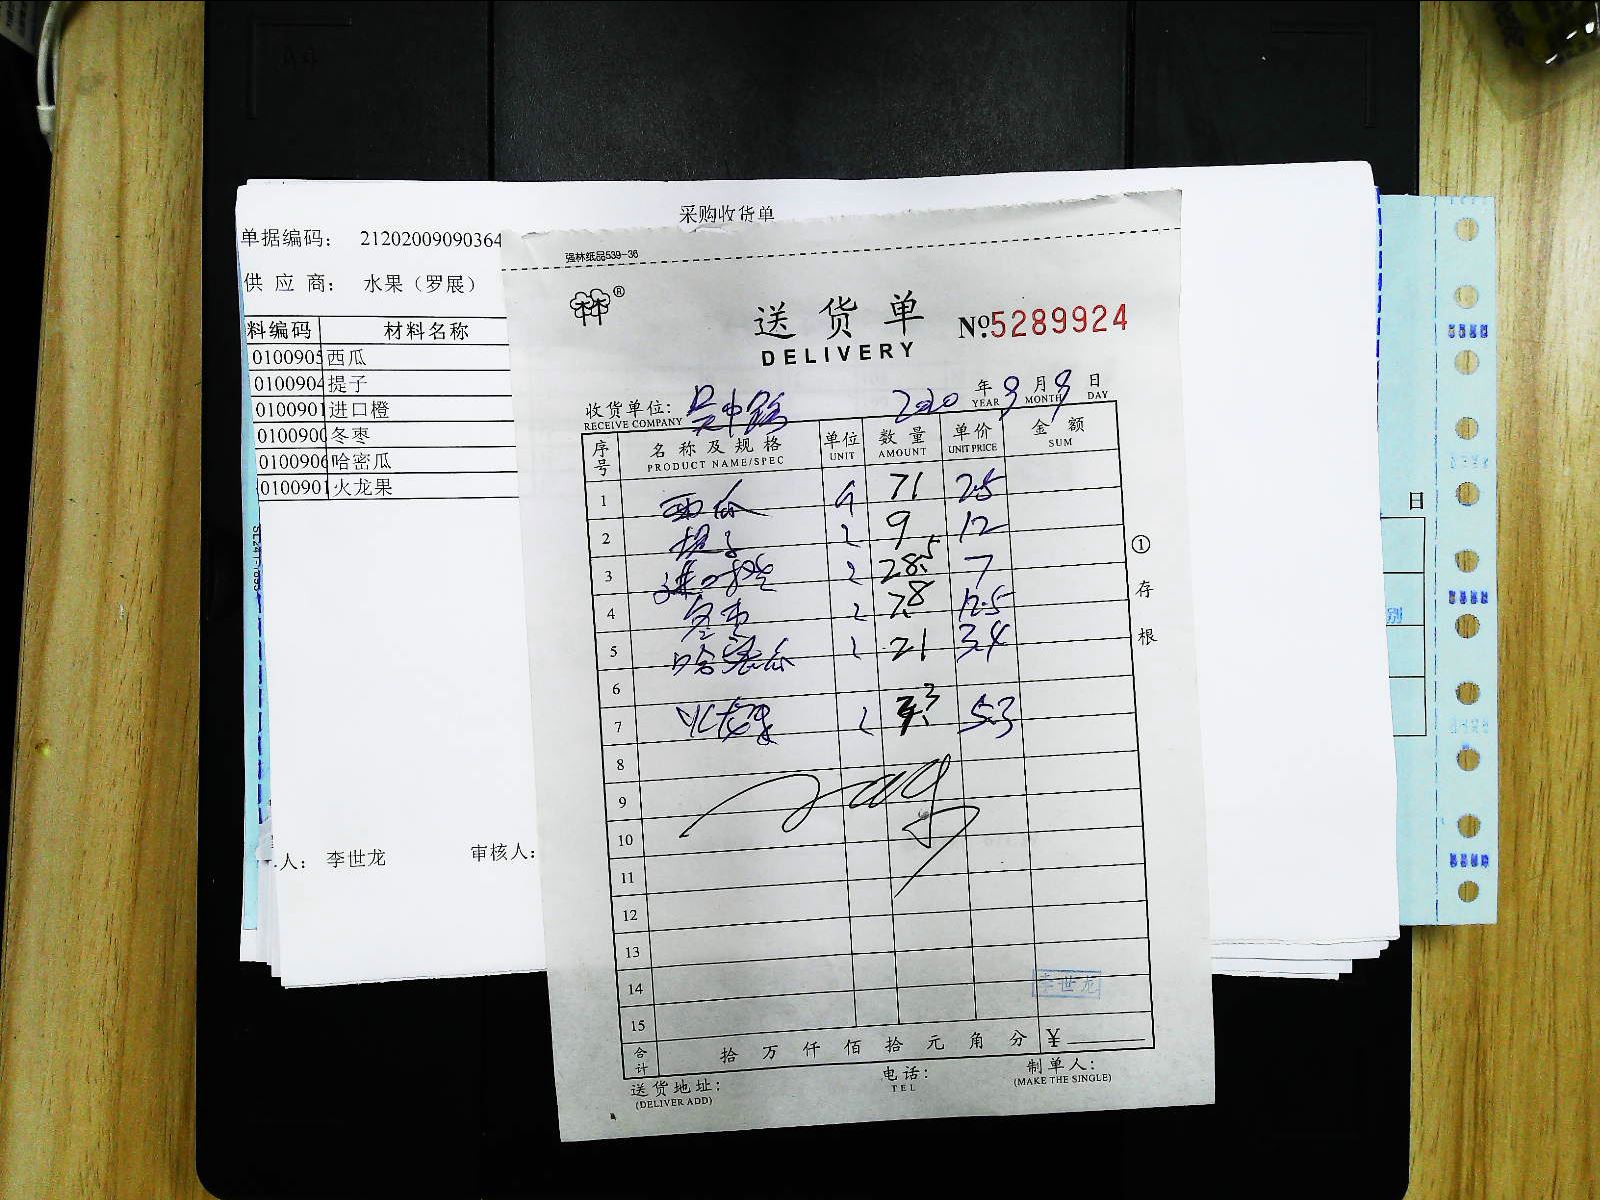 采购收货单
单据编码： 21202009090364
供 应 商： 水果（罗展）
料编码 材料名称
0100905 西瓜
0100904 提子
0100901 进口橙
0100900 冬枣
0100906 哈密瓜
0100901 火龙果
人： 李世龙 审核人：
强林纸品539-36
®
送货单
DELIVERY
№.5289924
收货单位： 吴中路 2020 年 9 月 9 日
RECEIVE COMPANY YEAR MONTH DAY
序号 名称及规格 单位 数量 单价 金额
PRODUCT NAME/SPEC UNIT AMOUNT UNIT PRICE SUM
1 西瓜 71 2.5
2 提子 9 12
3 进口橙 28.5 7
4 冬枣 7.8 12.5
5 哈密瓜 21 3.4
6
7 火龙果 5.3
8
9
10
11
12
13
14
15
李世龙
合计 拾 万 仟 佰 拾 元 角 分 ¥
送货地址： 电话： 制单人：
(DELIVER ADD) TEL (MAKE THE SINGLE)
① 存 根
日
别